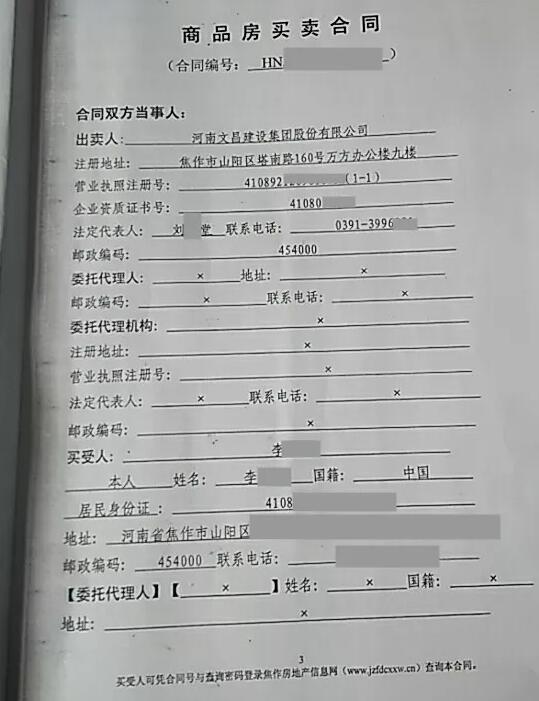 商品房买卖合同
（合同编号：HN）
合同双方当事人：
出卖人：河南文昌建设集团股份有限公司
注册地址：焦作市山阳区塔南路160号万方办公楼九楼
营业执照注册号：410892（1-1）
企业资质证书号：41080
法定代表人：刘 堂 联系电话：0391-3996
邮政编码：454000
委托代理人：× 地址：×
邮政编码：× 联系电话：×
委托代理机构：×
注册地址：×
营业执照注册号：×
法定代表人：× 联系电话：×
邮政编码：×
买受人：李
本人 姓名：李 国籍：中国
居民身份证：4108
地址：河南省焦作市山阳区
邮政编码：454000 联系电话：
【委托代理人】【 × 】姓名：× 国籍：×
地址：×
3
买受人可凭合同号与查询密码登录焦作房地产信息网（www.jzfdcxxw.cn）查询本合同。